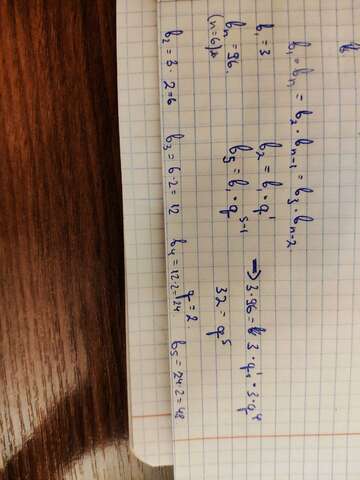 b₁ · bₙ = b₂ · bₙ₋₁ = b₃ · bₙ₋₂.
b₁ = 3
bₙ = 96.
(n=6)
b₂ = b₁ · q¹
b₅ = b₁ · q⁵⁻¹
→ 3·96 = 3 · q¹ · 3 · q⁴
32 = q⁵
q = 2.
b₂ = 3 · 2 = 6
b₃ = 6·2 = 12
b₄ = 12·2 = 24.
b₅ = 24·2 = 48